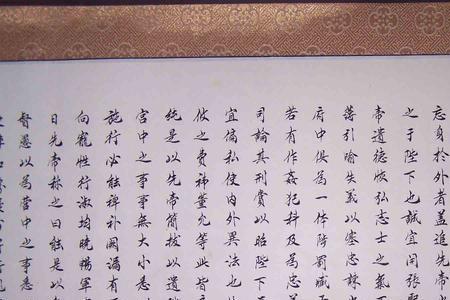 忘身於外者蓋追先帝
之于陛下也誠宜開張聖
帝遺德恢弘志士之氣不
薄引喻失義以塞忠諫
府中俱為一体陟罰臧
若有作奸犯科及為忠
司論其刑賞以昭陛下
宜偏私使內外異法也
攸之費禕董允等此皆
純是以先帝簡拔以遺
宮中之事事無大小悉
施行必能裨補闕漏有
向寵性行淑均曉暢軍
日先帝称之曰能是以
督愚以為營中之事悉